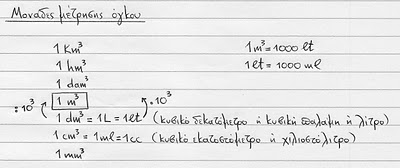 Μονάδες μέτρησης όγκου
1 Km³
1 hm³
1 dam³
1 m³
:10³ ·10³
1 dm³ = 1L = 1lt (κυβικό δεκατόμετρο ή κυβική παλάμη ή λίτρο)
1 cm³ = 1ml = 1cc (κυβικό εκατοστόμετρο ή χιλιοστόλιτρο)
1 mm³
1m³ = 1000 lt
1lt = 1000 ml